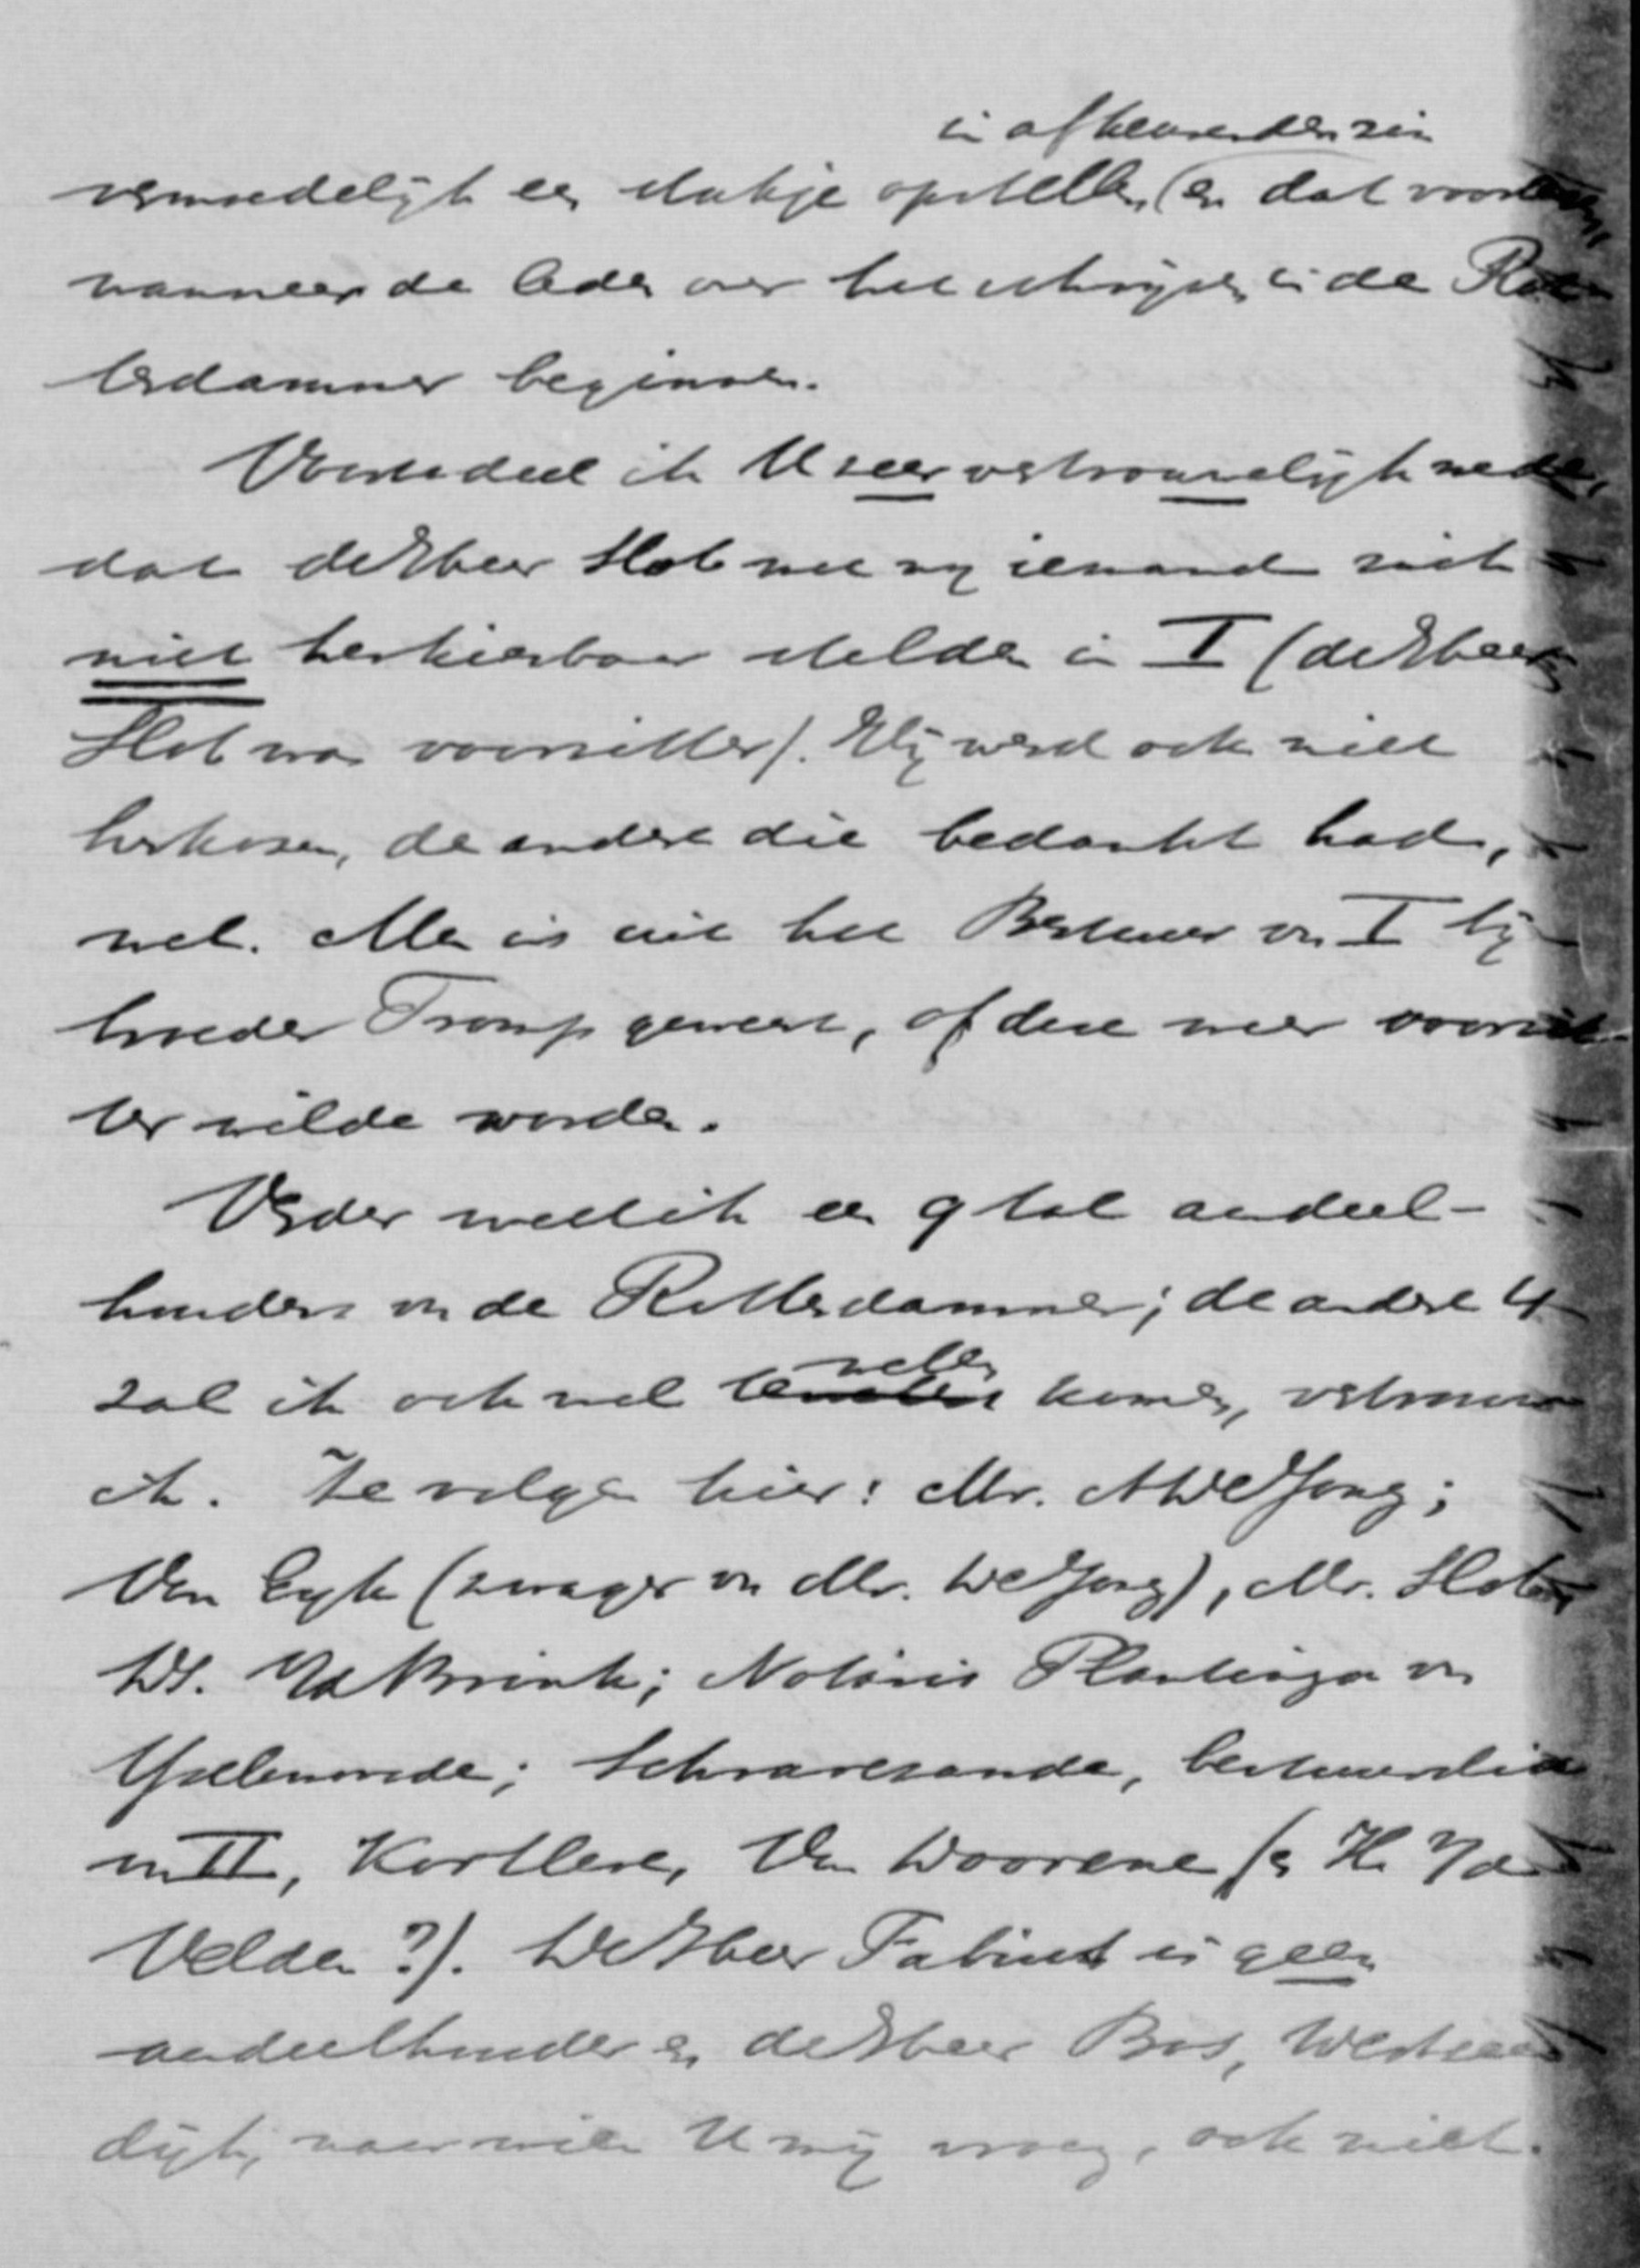 in afkeurenden zin
vermoedelijk een stukje opstellen (en dat voorlezen,
wanneer de leden over het schrijven in de Rot-
terdammer beginnen.
Voorts deel ik U zeer vertrouwelijk mede,
dat de Heer Slob met nog iemand zich
niet herkiesbaar stelden in I (de Heer
Slob was voorzitter). Hij werd ook niet
herkozen, de andere die bedankt had,
wel. Men is uit het Bestuur van I bij
broeder Tromp geweest, of deze weer voorzit-
ter wilde worden.
Verder weet ik een 9 tal aandeel-
houders van de Rotterdammer; de andere 4
zal ik ook wel weten komen, vertrouw
ik. Ze volgen hier: Mr. A de Jong;
Van Eyk (zwager van Mr. de Jong), Mr. Slob,
Ds. v/d Brink; Notaris Plantinga van
Ysselmonde; Schravesande, bestuurslid
van II, Kortleve, Van Doorene (en H. v/d
Velden?). De Heer Fabius is geen
aandeelhouder en de Heer Bos, Westzee-
dijk, naar wien U mij vroeg, ook niet.